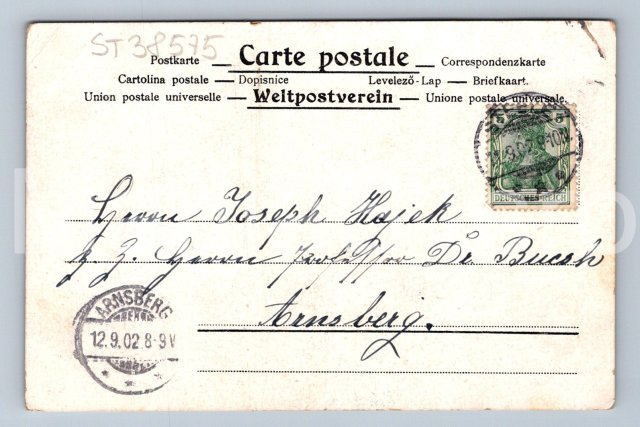 ST38575
Postkarte — Carte postale — Correspondenzkarte
Cartolina postale — Dopisnice Levelező-Lap — Briefkaart.
Union postale universelle — Weltpostverein — Unione postale universale.
5 5
9.02.8-10N.
DEUTSCHES REICH
Herrn Joseph Hajek
z. Z. Herrn Professor Dr. Bucsh
Arnsberg.
ARNSBERG
12.9.02 8-9V